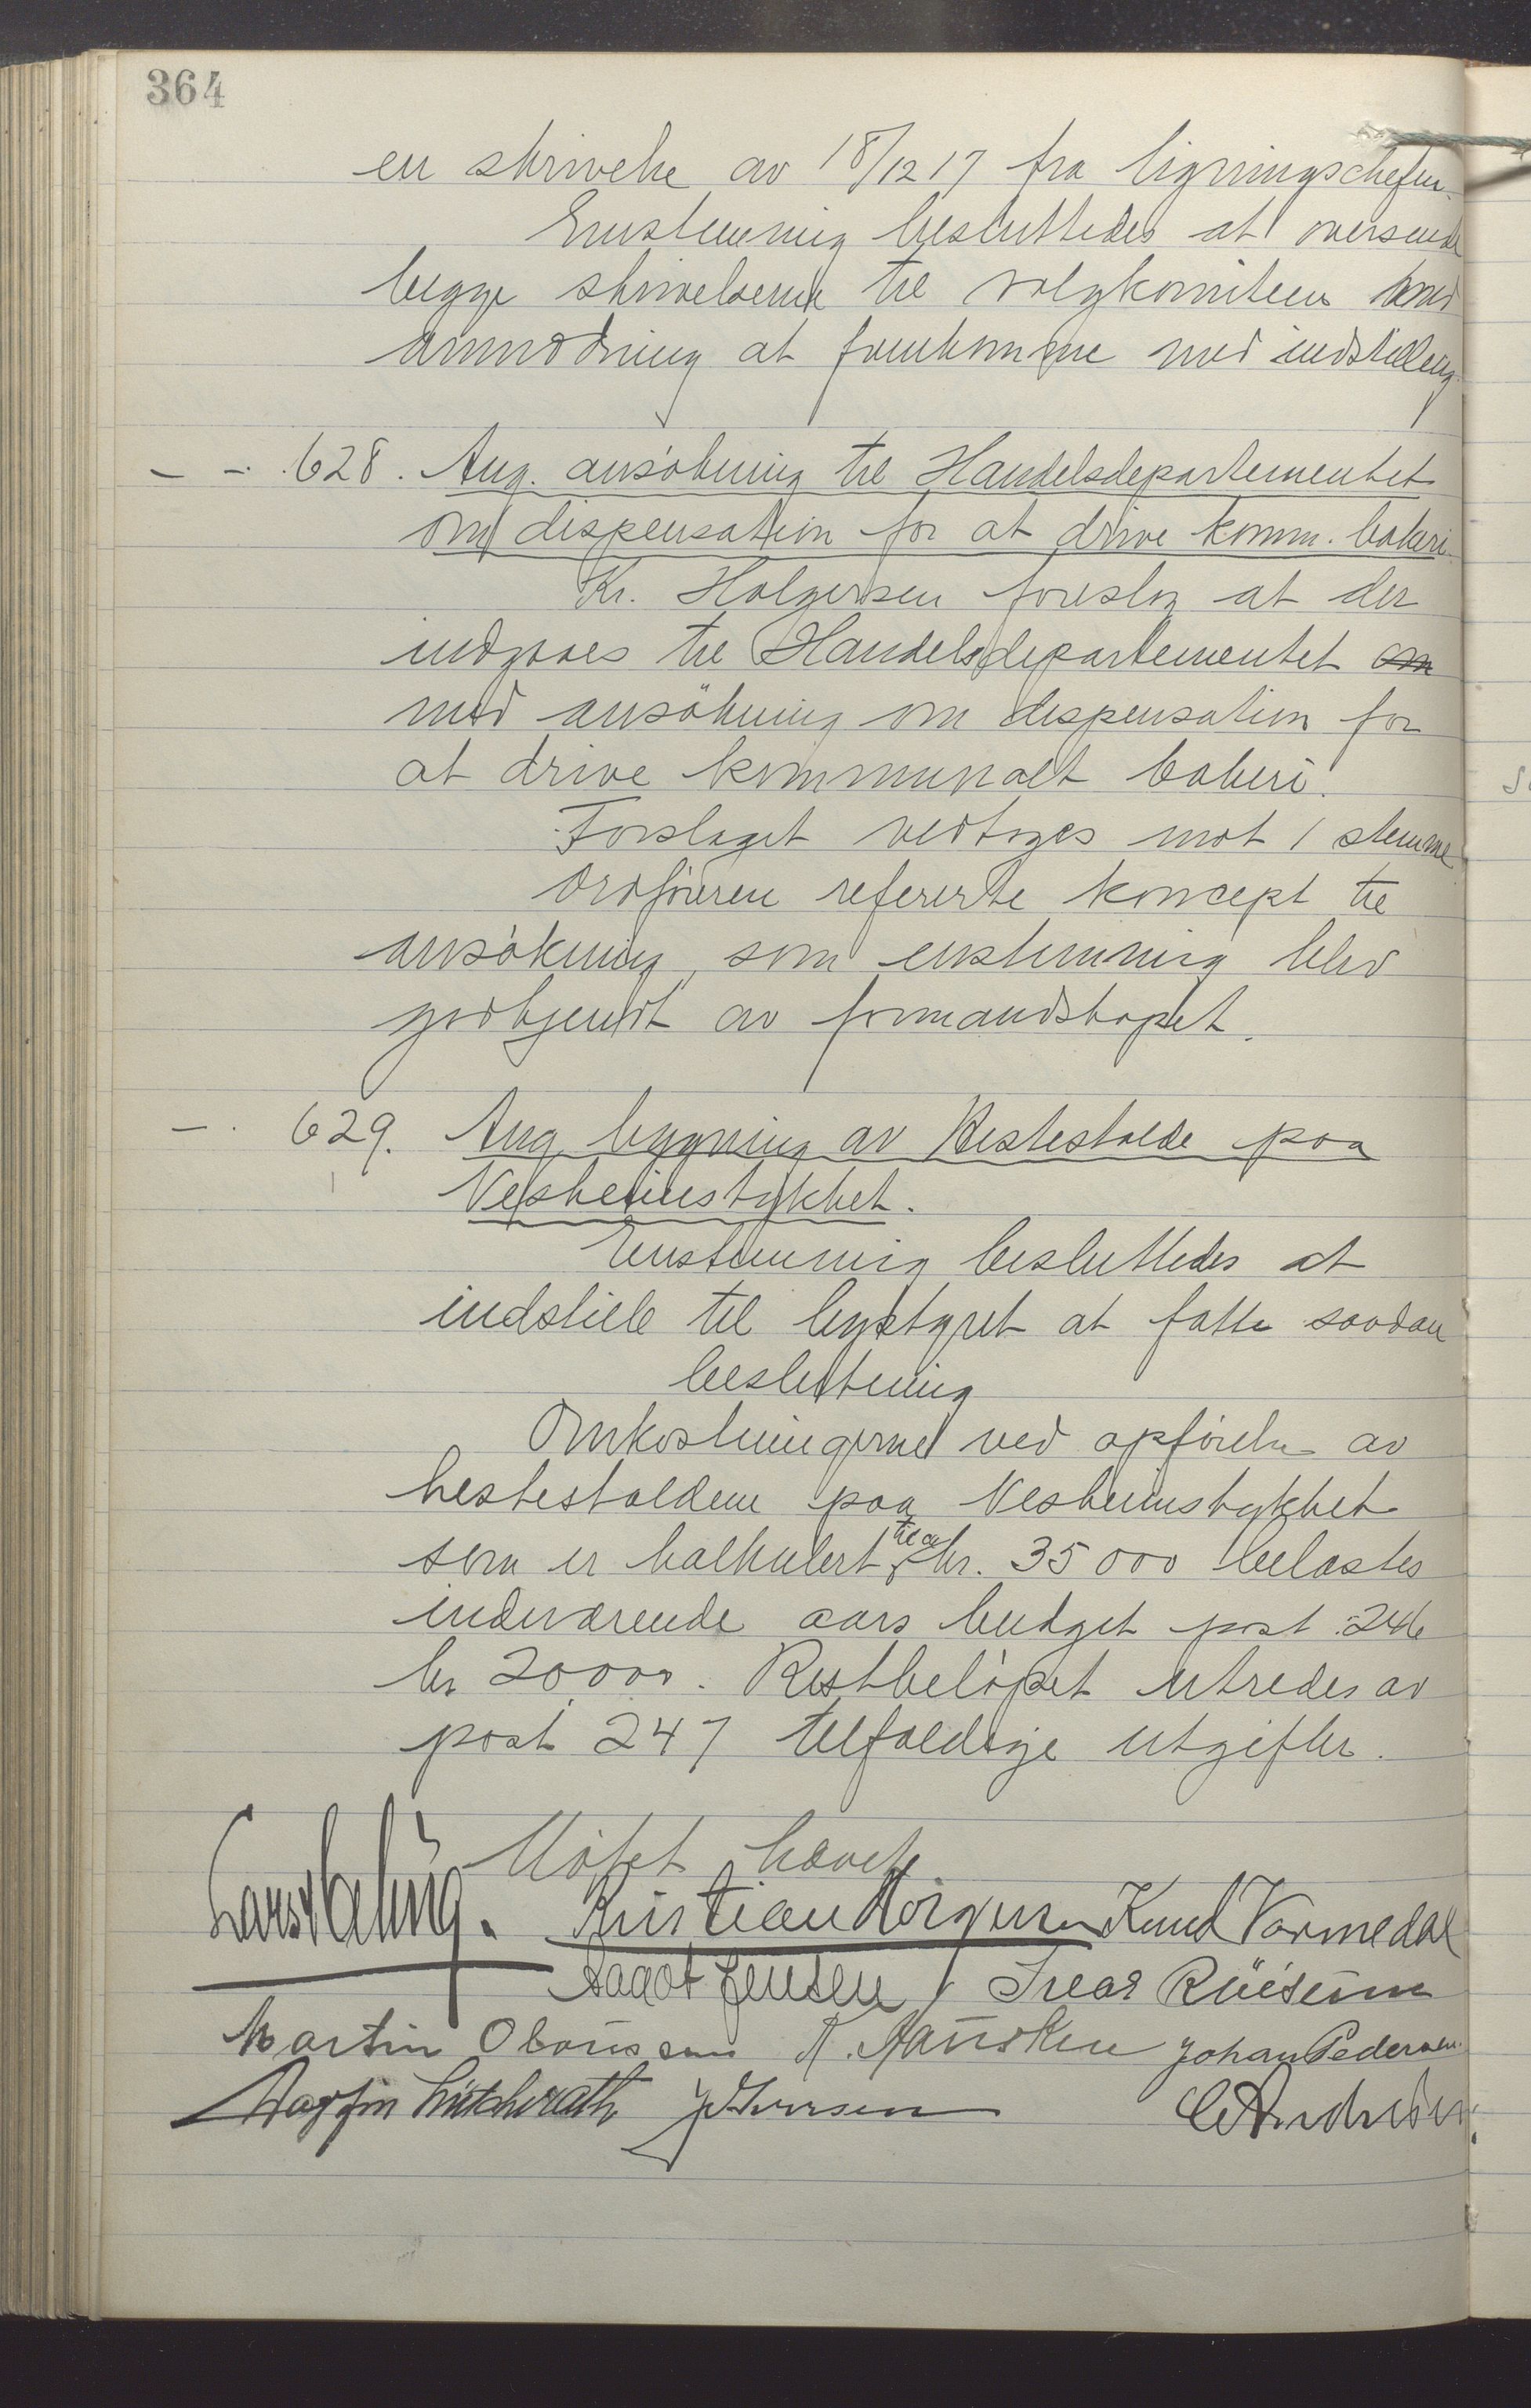 364
en skrivelse av 18/12 17 fra ligningschefen.
Enstemmig besluttedes at oversende
begge skrivelserne til valgkomiteen med
anmodning at fremkomme med indstilling.
- - 628. Ang. ansökning til Handelsdepartementet
om dispensation for at drive komm. bakeri.
Kr. Holgersen foreslog at der
indgaaes til Handelsdepartementet om
med ansökning om dispensation for
at drive kommunalt bakeri.
Forslaget vedtoges mot 1 stemme
Ordföreren refererte koncept til
ansökning, som enstemmig blev
godkjendt av formandskapet.
- . 629. Ang. bygning av Hestestalde paa
Vesheimstykket.
Enstemmig besluttedes at
indstille til bystyret at fatte saadan
beslutning
Omkostningerne ved opförelse av
hestestaldene paa Vesheimstykket
som er kalkulert til ca kr. 35 000 belastes
indeværende aars budget post 246
kr 20000. Restbelöpet utredes av
post 247 tilfældige utgifter.
Mötet hævet
Kristian Knud Vormedal
Aagot Jensen
Martin Johan Pedersen
J Iversen